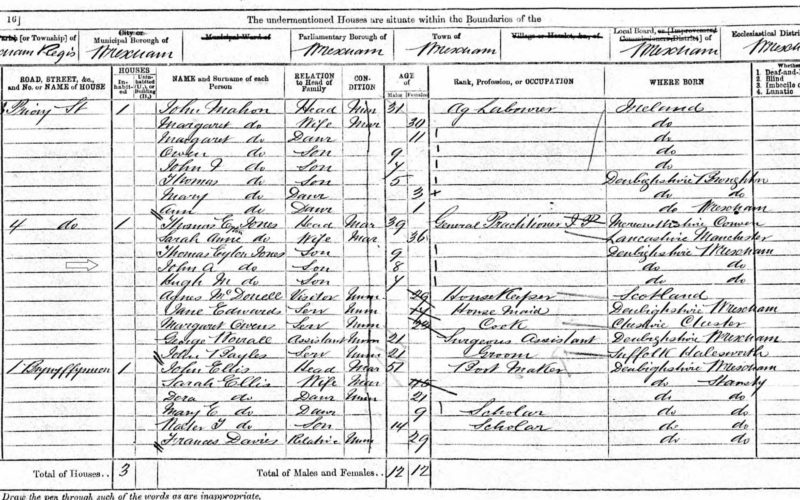 16] The undermentioned Houses are situate within the Boundaries of the
[or Township] of City or Municipal Borough of Municipal Ward of Parliamentary Borough of Town of Village or Hamlet, &c., of Local Board, or [Improvement Commissioners District] of Ecclesiastical District
Regis Wrexham Wrexham Wrexham Wrexham Wrex
ROAD, STREET, &c., and No. or NAME of HOUSE HOUSES Inhabited Uninhabited (U.), or Building (B.) NAME and Surname of each Person RELATION to Head of Family CONDITION AGE of Males Females Rank, Profession, or OCCUPATION WHERE BORN Whether 1. Deaf-and- 2. Blind 3. Imbecile or 4. Lunatic
Priory St 1 John Mahon Head 31 Ag Labourer Ireland
Margaret do Wife Mar 30 do
Margaret do Daur 11 do
Owen do Son 9 do
John do Son do
Thomas do Son 5 Denbighshire Broughton
Mary do Daur 3 do do
Ann do Daur 1 do Wrexham
4 do 1 Thomas Jones Head Mar 39 General Practitioner
Sarah Anne do Wife Mar 36 Lancashire Manchester
Thomas Eyton Jones Son 9 Denbighshire Wrexham
John A do Son 8 do do
Hugh M do Son 4 do do
Agnes McDonell Visitor Unm 29 House Keeper Scotland
Jane Edwards Serv Unm House Maid Denbighshire Wrexham
Margaret Owens Serv Unm Cook Cheshire Chester
George Assistant Unm 21 Surgeons Assistant Denbighshire Wrexham
John Bayles Serv Unm 21 Groom Suffolk Halesworth
1 Brynyffynnon 1 John Ellis Head Mar 51 Boot Maker Denbighshire Wrexham
Sarah Ellis Wife Mar 45 do Stansty
Dora do Daur Unm 21 do do
Mary E do Daur 9 Scholar do do
do Son 14 Scholar do do
Frances Davies Relative Unm 29 do do
Total of Houses.. 3 Total of Males and Females.. 12 12
Draw the pen through such of the words as are inappropriate.